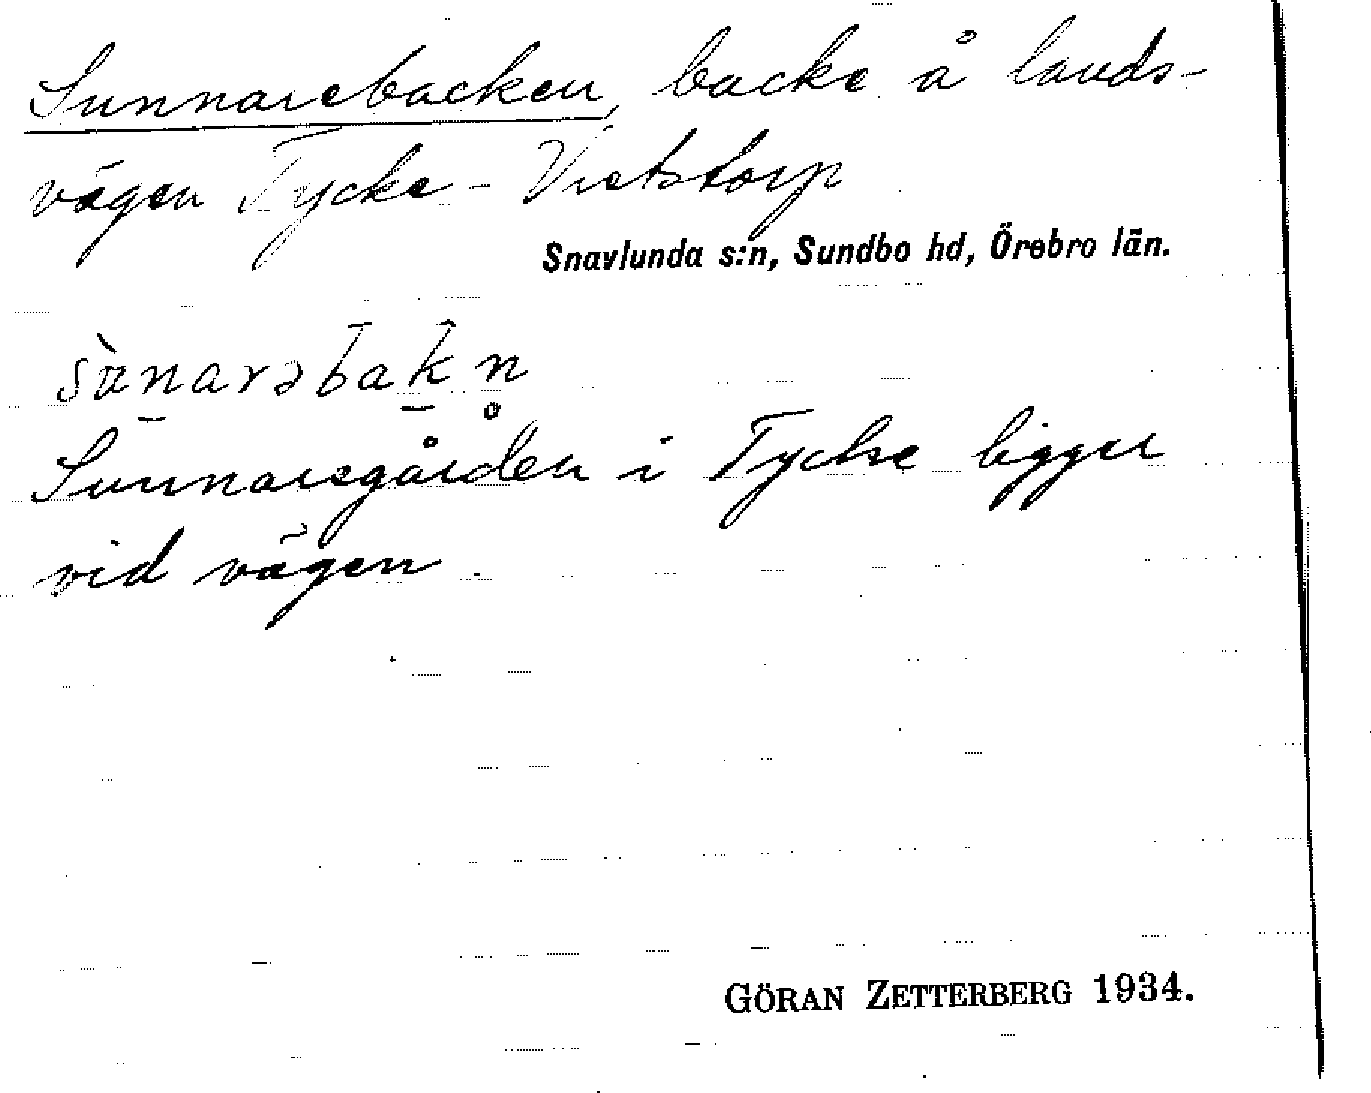 Sunnarebacken, backe å lands-
vägen Tycke - Vretstorp
Snavlunda s:n, Sundbo hd, Örebro län.
sànarəbak̠n̥
Sunnaregården i Tycke ligger
vid vägen.
GÖRAN ZETTERBERG 1934.